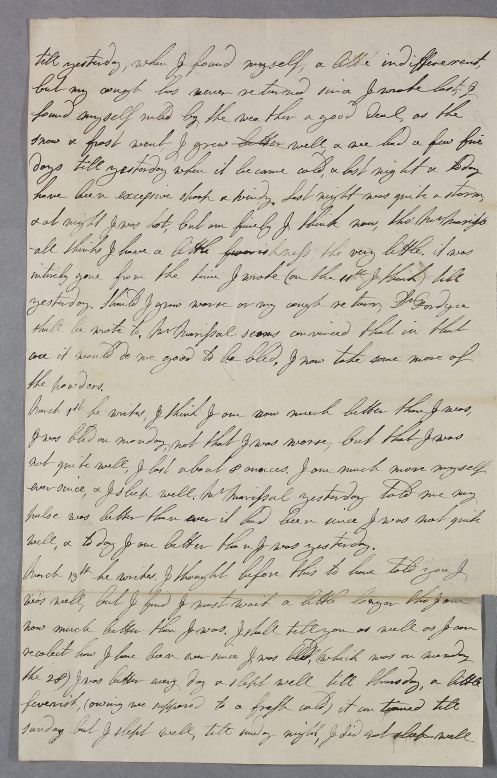 till yesterday, when I found myself, a little indifferent,
but my cough has never returned since I wrote last; I
found myself ruled by the weather a good deal, as the
snow & frost went I grew better well, & we had a few fine
days till yesterday when it became cold & last night & to day
have been excessive sharp & windy, last night was quite a storm,
& at night I was hot, but am finely I think now, tho' Mr Maripal
all thinks I have a little feverishness, tho very little, it was
intirely gone from the time I wrote (on the 11th I think) till
yesterday. Should I grow worse or my cough return, Dr Fordyce
shall be wrote to, Mr Maripal seems convinced that in that
case it would do me good to be bled. I now take some more of
the powders.
March 1st he writes, I think I am now much better than I was,
I was bled on monday, not that I was worse, but that I was
not quite well, I lost about 8 ounces. I am much more myself
ever since, & I sleep well, Mr Maripal yesterday told me my
pulse was better than ever it had been since I was not quite
well, & to day I am better than I was yesterday.
March 13th he writes. I thought before this to have told you I
was well, but I find I must wait a little longer tho I am
now much better than I was. I shall tell you as well as I can
recolect how I have been ever since I was bled, which was on monday
the 28) I was better every day & slept well till thursday, a little
feverish, (owing we supposed to a fresh cold) it con tinued till
sunday but I slept well, till sunday night, I did not sleep well